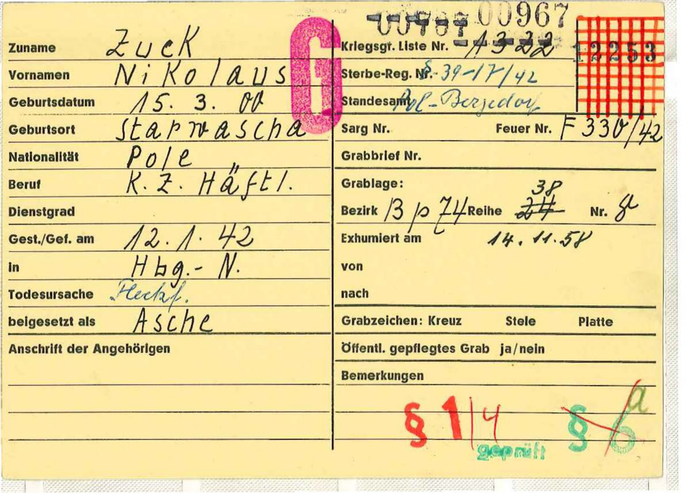 00967
Zuname Zuck
Vornamen Nikolaus
Geburtsdatum 15. 3. 00
Geburtsort Starwascha
Nationalität Pole
Beruf K. Z. Häftl.
Dienstgrad
Gest./Gef. am 12. 1. 42
in Hbg.- N.
Todesursache Fleckf.
beigesetzt als Asche
Anschrift der Angehörigen
G
Kriegsgr. Liste Nr. 1322
12253
Sterbe-Reg. Nr. 39-17/42
Standesamt Bergedorf
Sarg Nr. Feuer Nr. F 330/42
Grabbrief Nr.
Grablage: 38
Bezirk Bp 74 Reihe 24 Nr.
Exhumiert am 14. 11. 58
von
nach
Grabzeichen: Kreuz Stele Platte
Öffentl. gepflegtes Grab ja/nein
Bemerkungen
§ 1/4 geprüft § 6 a